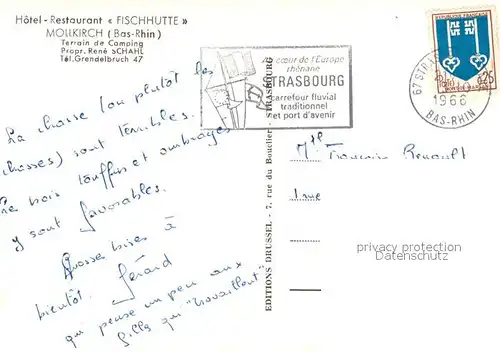 Hôtel-Restaurant « FISCHHUTTE »
MOLLKIRCH (Bas-Rhin)
Terrain de Camping
Propr. René SCHAHL
Tél. Grendelbruch 47
La chasse (ou plutôt les
chasses) sont terribles.
bois touffus et ombragés
y sont favorables.
Grosses bises à
bientôt. Gérard
qui pense un peu aux
filles qui "travaillent"
EDITIONS BRUSSEL - 7, rue du Bouclier - STRASBOURG
Au cœur de l'Europe
rhénane
STRASBOURG
carrefour fluvial
traditionnel
et port d'avenir
67 STR
1966
BAS-RHIN
REPUBLIQUE FRANÇAISE
0,25
Mlle Renault
1 rue
privacy protection
Datenschutz